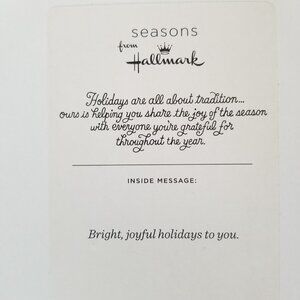 seasons
from
Hallmark
Holidays are all about tradition...
ours is helping you share the joy of the season
with everyone you're grateful for
throughout the year.
INSIDE MESSAGE:
Bright, joyful holidays to you.